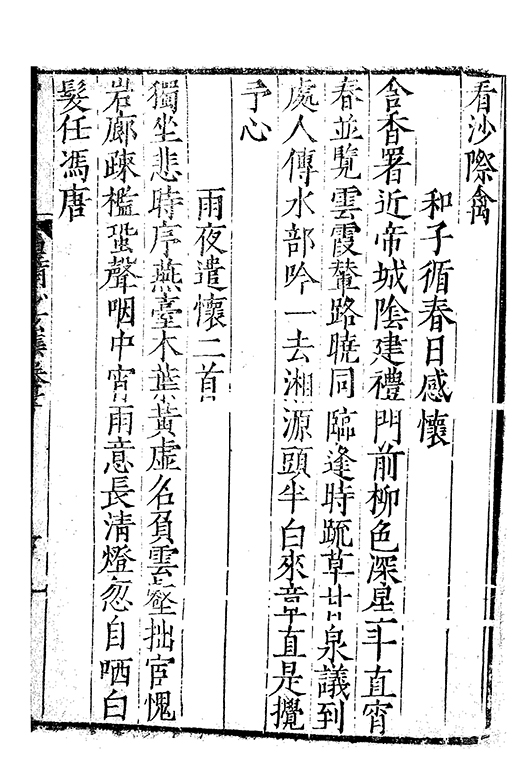 看沙際禽
和子循春日感懷
含香署近帝城陰建禮門前柳色深星斗直宵
春並覽雲霞輦路曉同臨逢時疏草甘泉議到
處人傳水部吟一去湘源頭半白來章直是攪
予心
雨夜遣懷二首
獨坐悲時序燕臺木葉黃虛名負雲壑拙宦愧
岩廊疎檻蛩聲咽中宵雨意長清燈忽自哂白
髮任馮唐